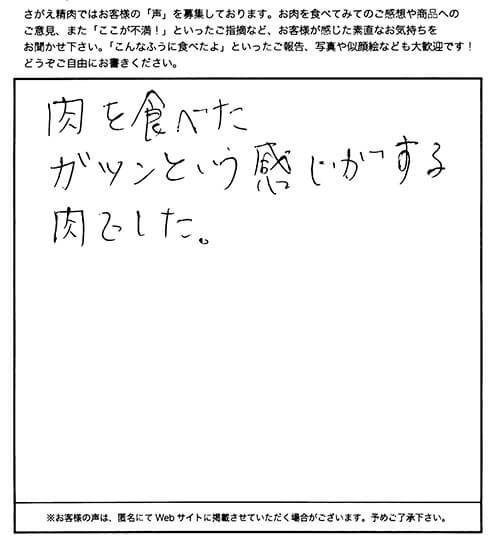 さがえ精肉ではお客様の「声」を募集しております。お肉を食べてみてのご感想や商品への
ご意見、また「ここが不満！」といったご指摘など、お客様が感じた素直なお気持ちを
お聞かせ下さい。「こんなふうに食べたよ」といったご報告、写真や似顔絵なども大歓迎です！
どうぞご自由にお書きください。
肉を食べた
ガツンという感じがする
肉でした。
※お客様の声は、匿名にてWebサイトに掲載させていただく場合がございます。予めご了承下さい。